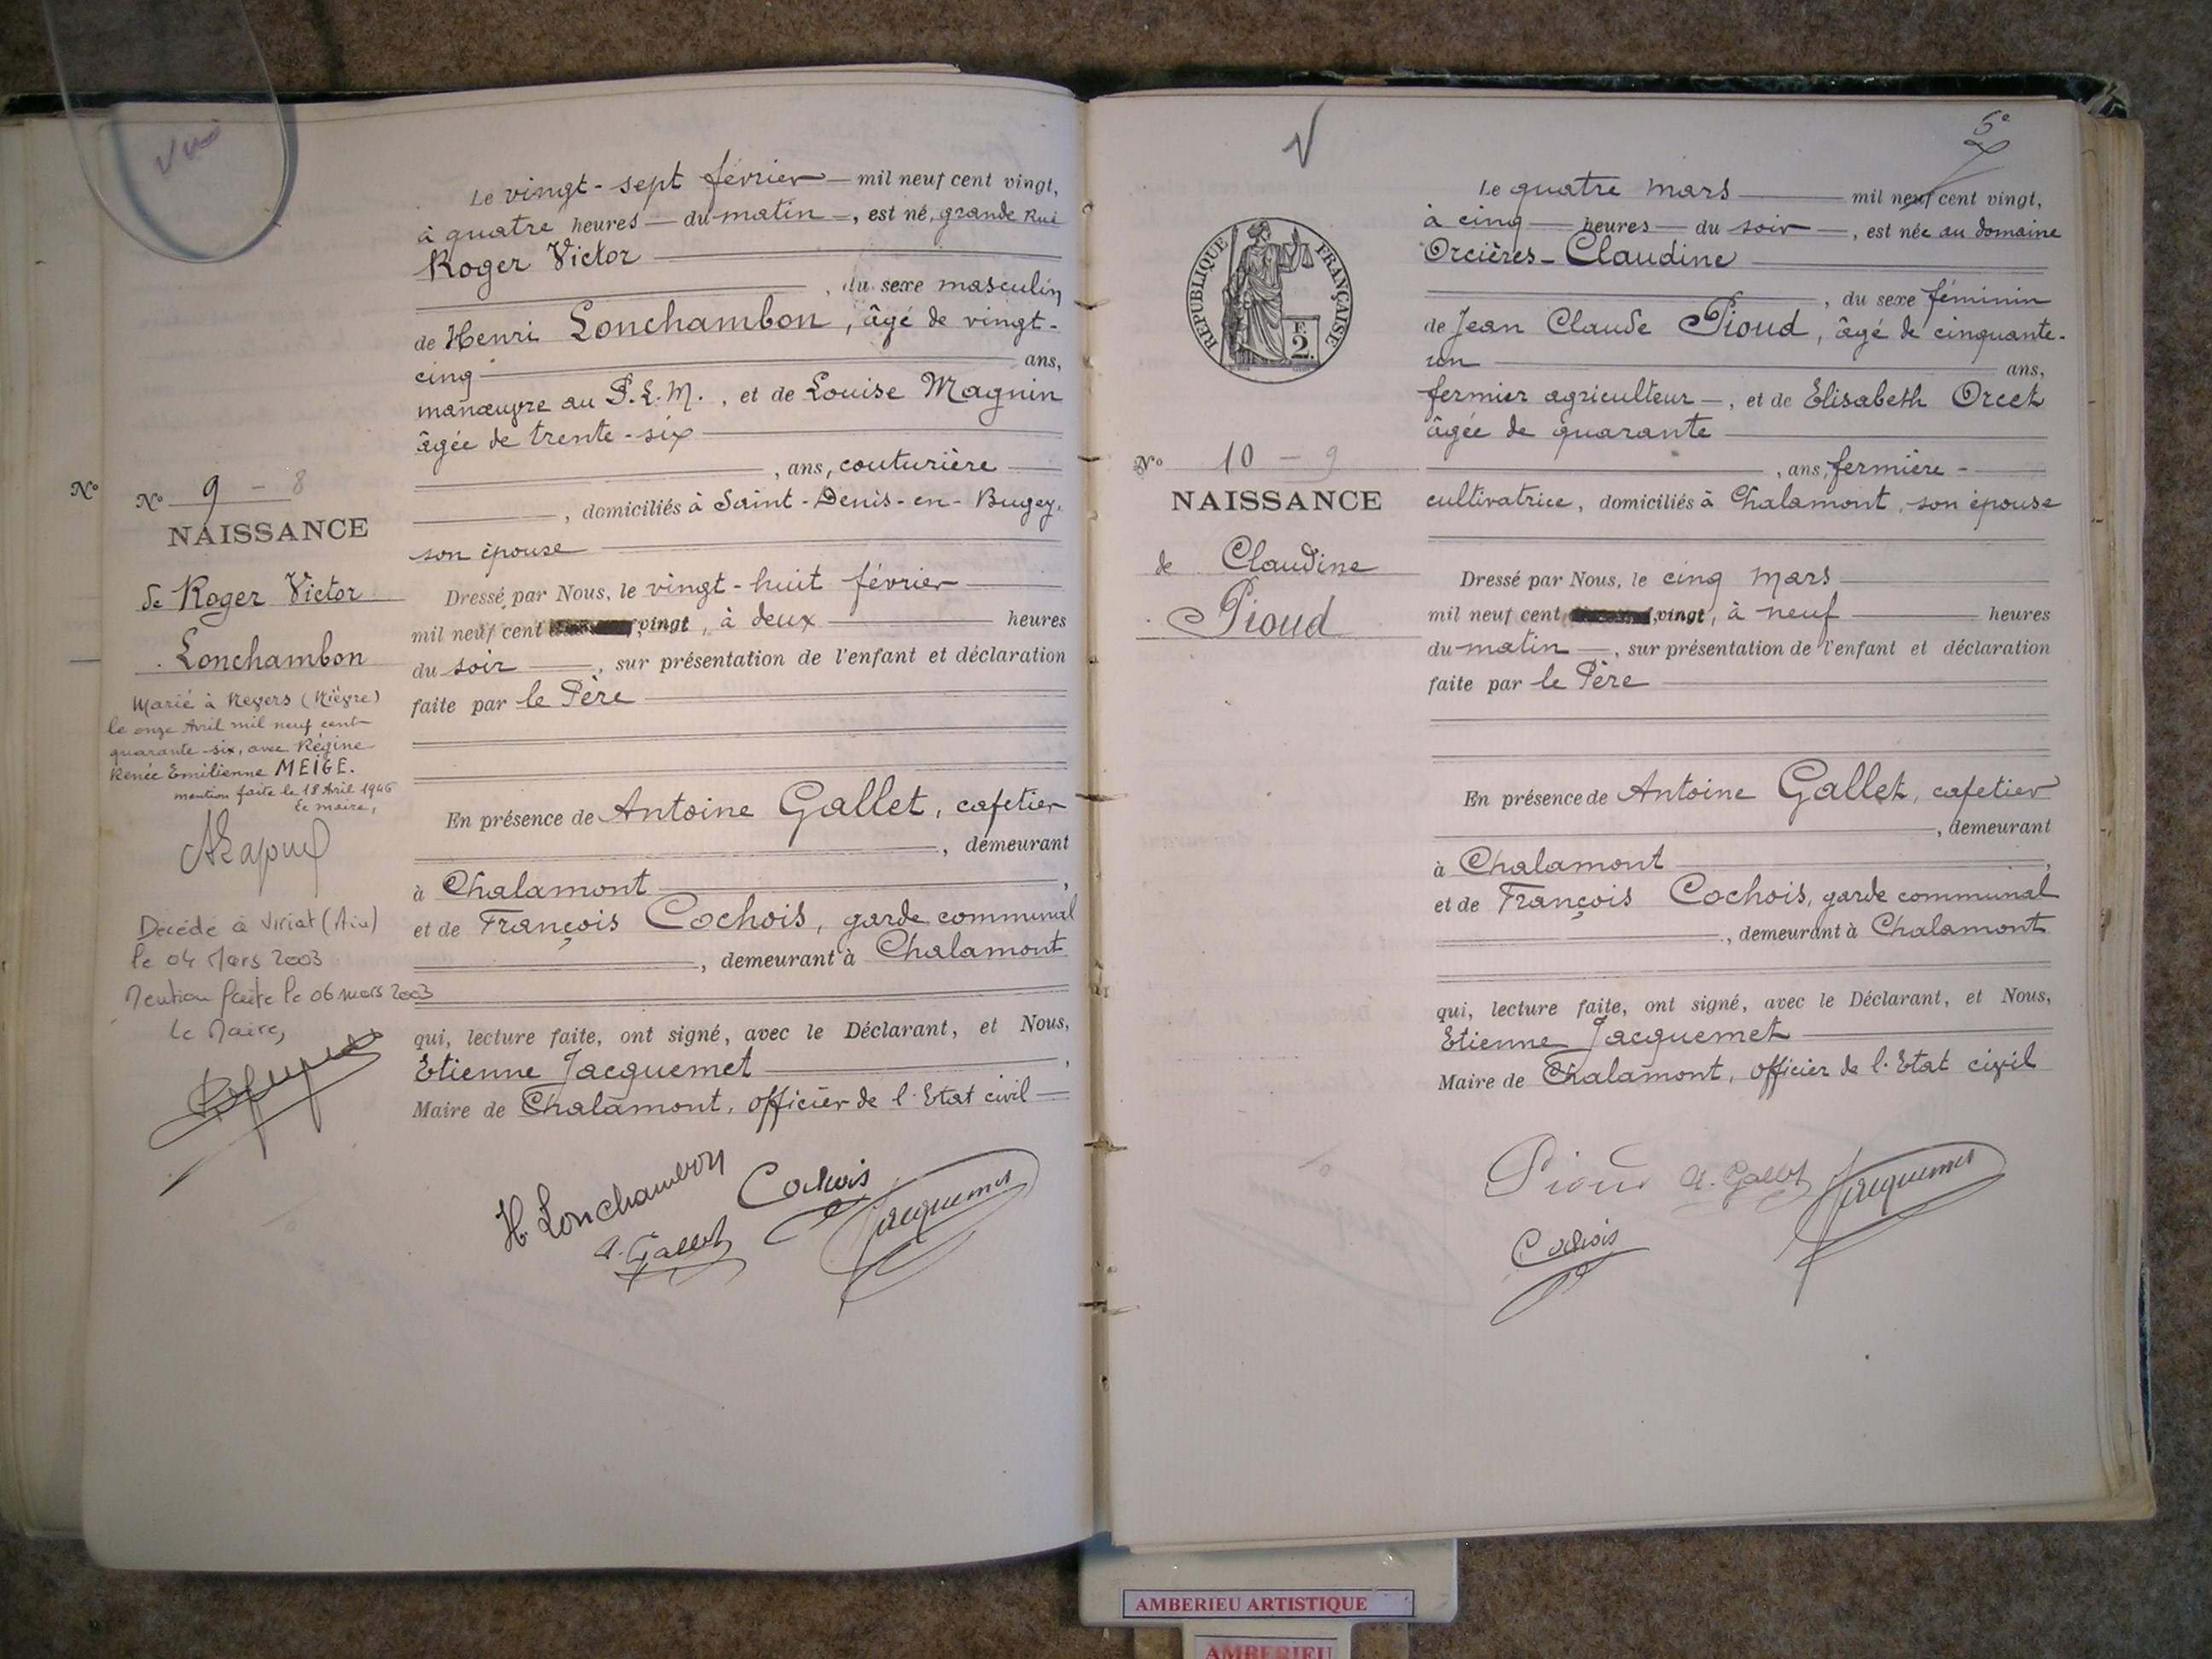 Vu
N°
N° 9 - 8
NAISSANCE
de Roger Victor
Lonchambon
Marié à Nevers (Nièvre)
le onze Avril mil neuf cent
quarante-six, avec Régine
Renée Emilienne MEIGE.
mention faite le 18 Avril 1946
Le maire,
Décédé à Viriat (Ain)
le 04 Mars 2003
Mention faite le 06 mars 2003
Le Maire,
Le vingt-sept février mil neuf cent vingt,
à quatre heures du matin, est né, grande Rue
Roger Victor
, du sexe masculin
de Henri Lonchambon, âgé de vingt-
cinq ans,
manœuvre au P.L.M., et de Louise Magnin
âgée de trente-six
, ans, couturière
, domiciliés à Saint-Denis-en-Bugey,
son épouse
Dressé par Nous, le vingt-huit février
mil neuf cent vingt, à deux heures
du soir, sur présentation de l'enfant et déclaration
faite par le Père
En présence de Antoine Gallet, cafetier
, demeurant
à Chalamont,
et de François Cochois, garde communal
, demeurant à Chalamont
qui, lecture faite, ont signé, avec le Déclarant, et Nous,
Etienne Jacquemet,
Maire de Chalamont, officier de l'Etat civil
H. Lonchambon
Cochois
A. Gallet
Jacquemet
5e
RÉPUBLIQUE FRANÇAISE
F.
2.
N° 10 - 9
NAISSANCE
de Claudine
Pioud
Le quatre mars mil neuf cent vingt,
à cinq heures du soir, est née au domaine
Orcières - Claudine
, du sexe féminin
de Jean Claude Pioud, âgé de cinquante-
un ans,
fermier agriculteur, et de Elisabeth Orcet
âgée de quarante
, ans, fermière -
cultivatrice, domiciliés à Chalamont, son épouse
Dressé par Nous, le cinq mars
mil neuf cent vingt, à neuf heures
du matin, sur présentation de l'enfant et déclaration
faite par le Père
En présence de Antoine Gallet, cafetier
, demeurant
à Chalamont,
et de François Cochois, garde communal
, demeurant à Chalamont
qui, lecture faite, ont signé, avec le Déclarant, et Nous,
Etienne Jacquemet
Maire de Chalamont, officier de l'Etat civil
Pioud A. Gallet Jacquemet
Cochois
AMBERIEU ARTISTIQUE
AMBERIEU